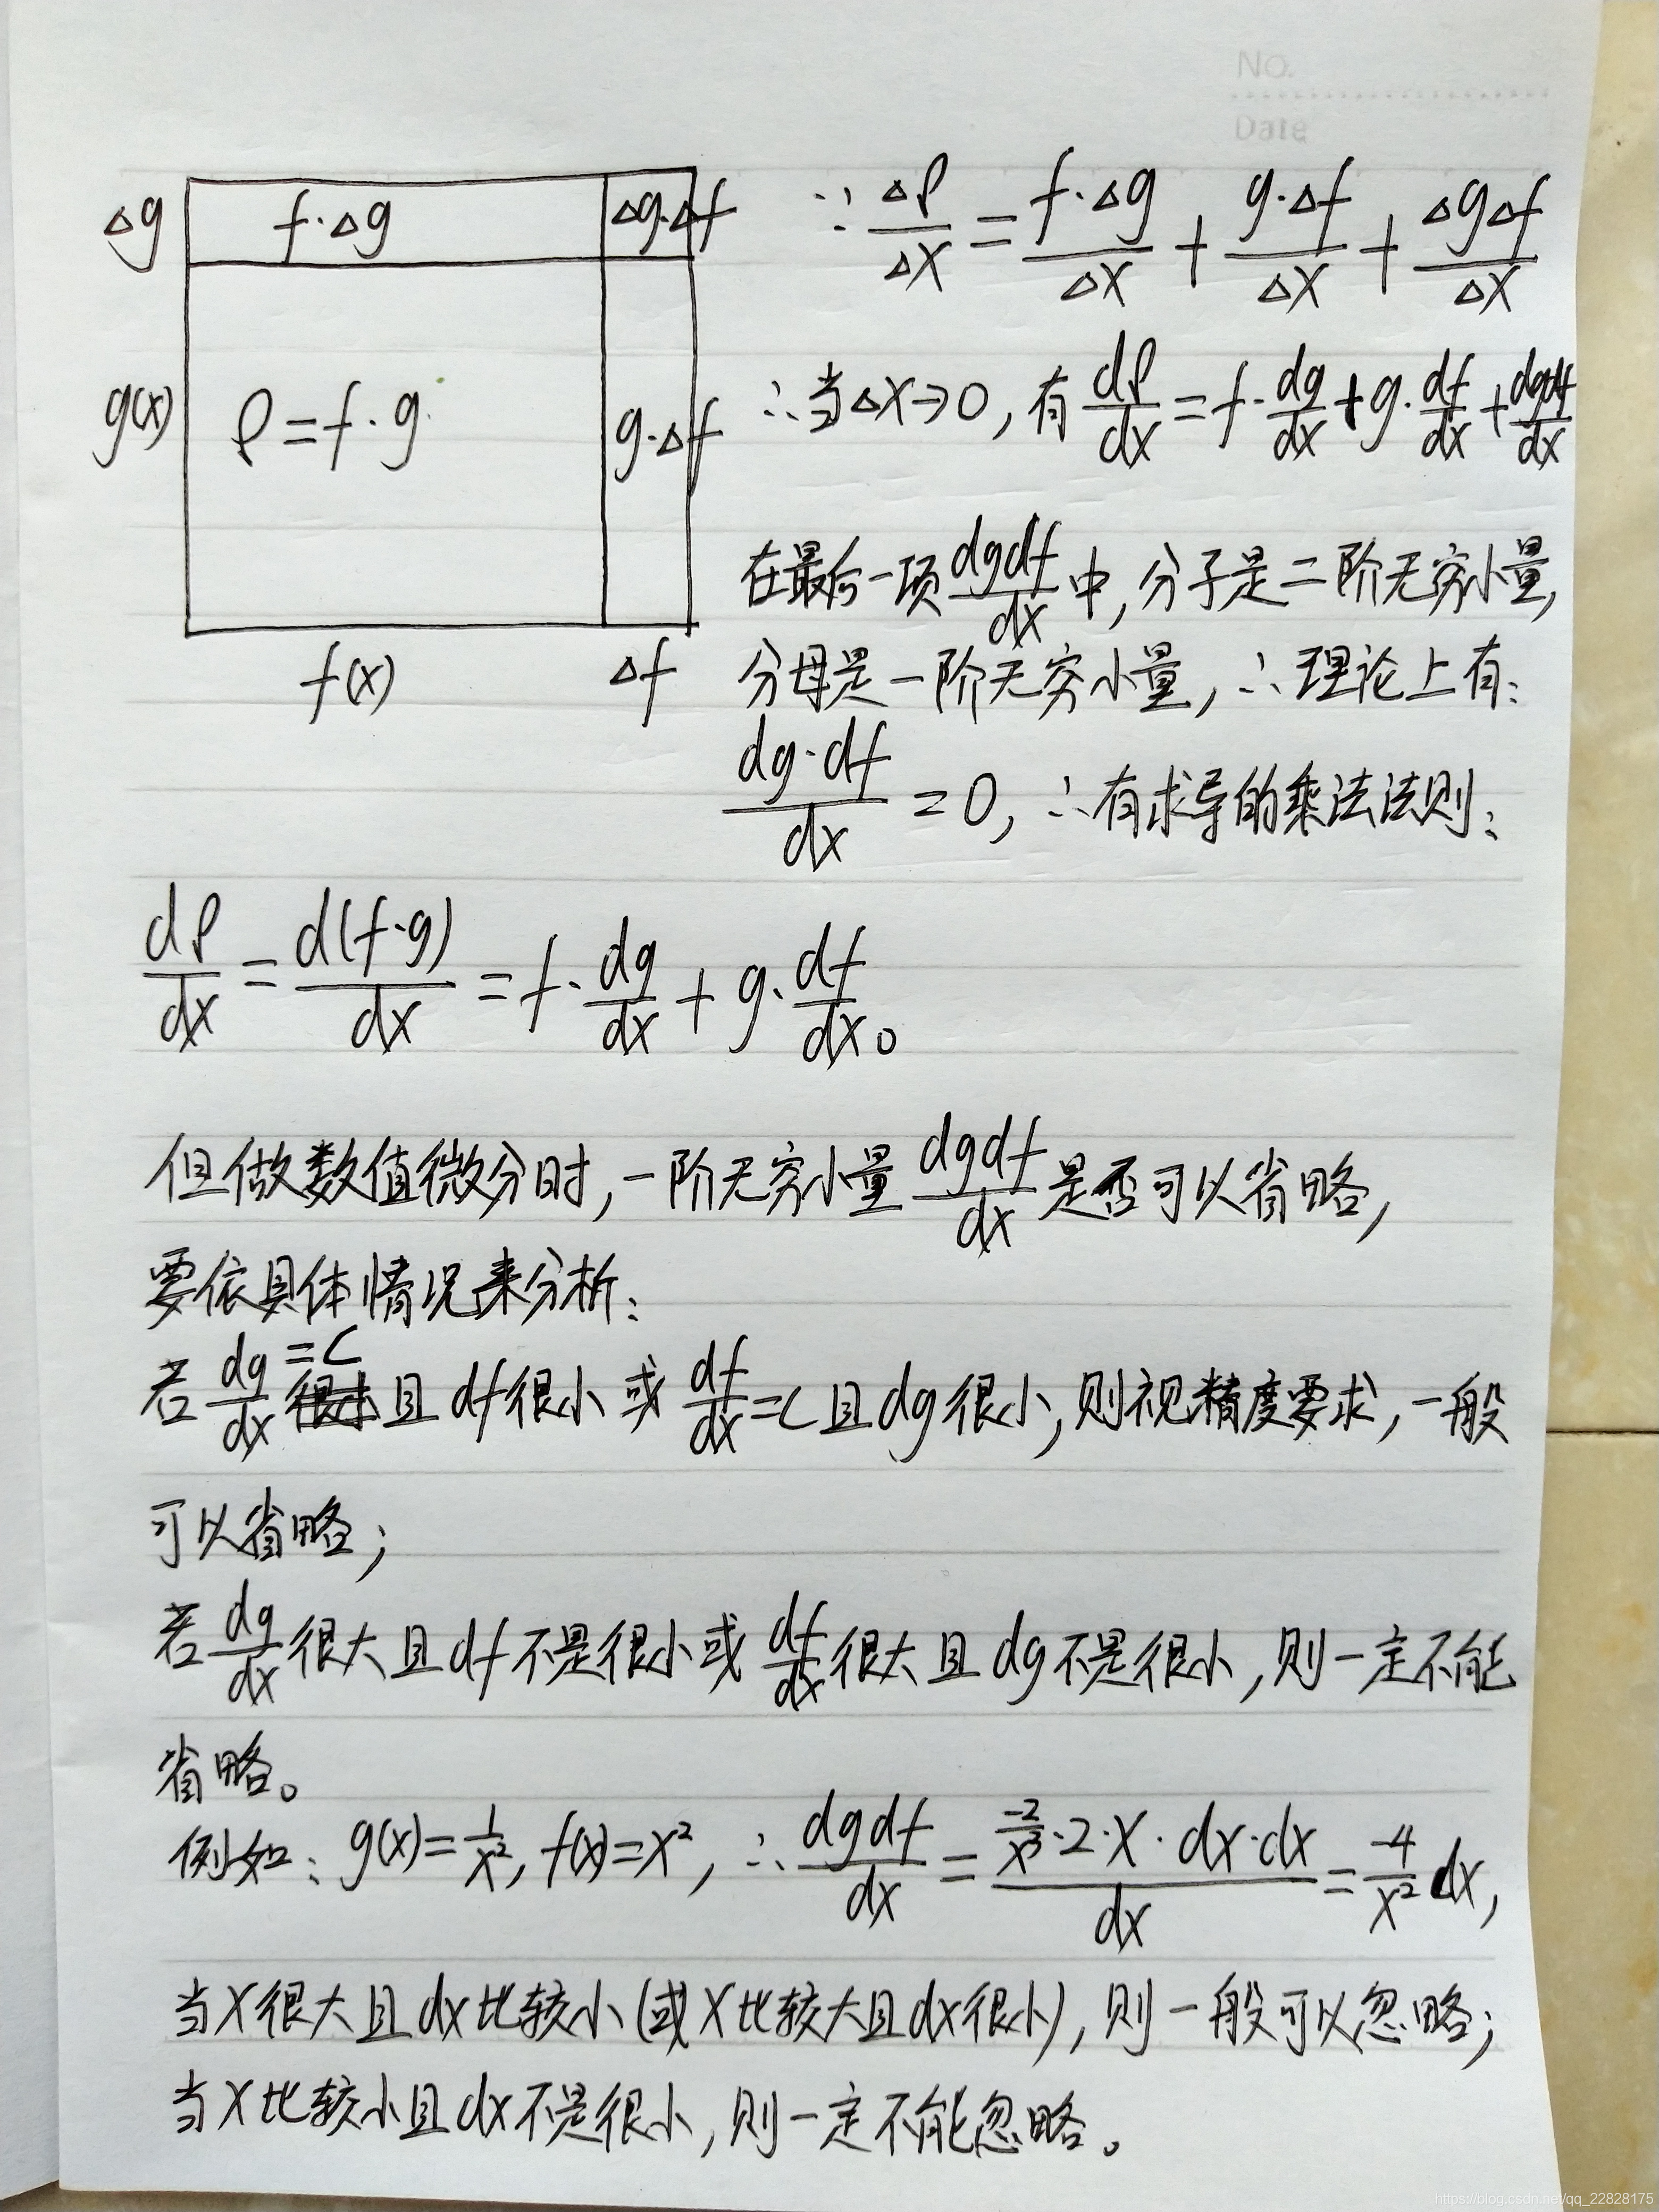 No.
Date
Δg f·Δg Δg·Δf
g(x) ρ=f·g g·Δf
f(x) Δf
∵ Δρ/Δx = f·Δg/Δx + g·Δf/Δx + ΔgΔf/Δx
∴当Δx→0, 有 dρ/dx = f·dg/dx + g·df/dx + dgdf/dx
在最后一项 dgdf/dx 中, 分子是二阶无穷小量,
分母是一阶无穷小量, ∴理论上有:
dg·df/dx = 0, ∴有求导的乘法法则:
dρ/dx = d(f·g)/dx = f·dg/dx + g·df/dx。
但做数值微分时, 一阶无穷小量 dgdf/dx 是否可以省略,
要依具体情况来分析:
若 dg/dx =C 且 df很小 或 df/dx =C 且 dg很小, 则视精度要求, 一般
可以省略;
若 dg/dx 很大且 df 不是很小或 df/dx 很大且 dg不是很小, 则一定不能
省略。
例如: g(x)=1/x², f(x)=x², ∴ dgdf/dx = (-2/x³·2·x·dx·dx)/dx = -4/x² dx,
当x很大且dx比较小(或x比较大且dx很小), 则一般可以忽略;
当x比较小且dx不是很小, 则一定不能忽略。
https://blog.csdn.net/qq_22828175